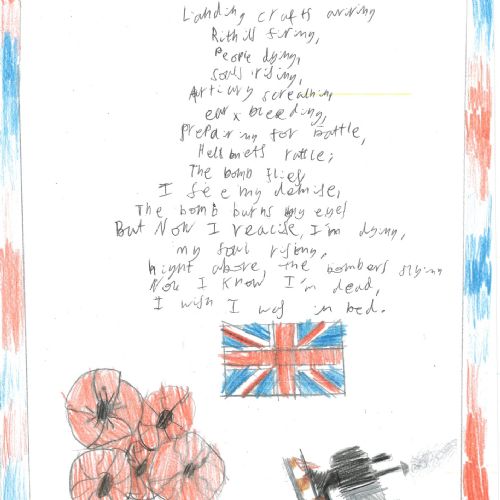 Landing crafts ariving
Rithils firing,
People dying,
souls rising,
Artilary screaming
ear x bleeding,
prepairing for battle,
Helbmets rattle;
The bomb flies
I see my demise,
The bomb burns my eyes
But Now I reacise, I'm dying,
my soul rising,
hight above, the bombers flying
Now I know I'm dead,
I wish I was in bed.